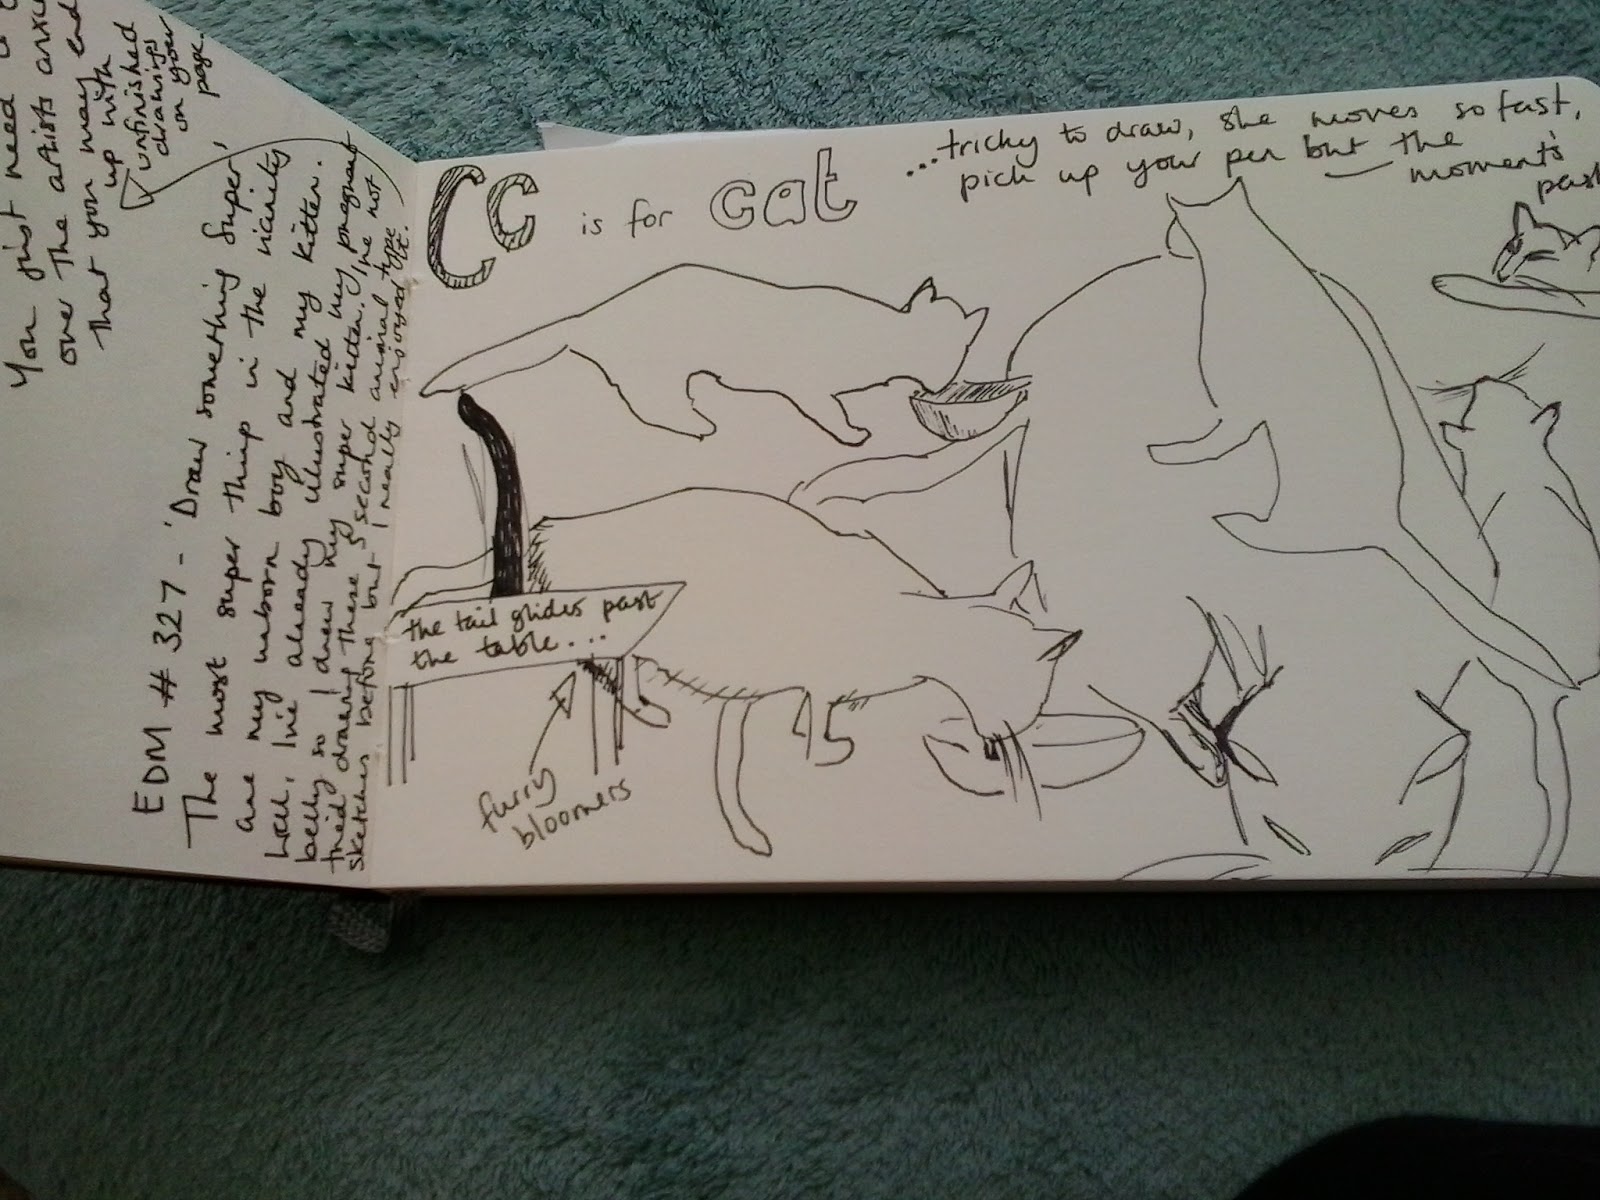 You first need to
over the artists
that you may end
up with
unfinished
drawings
on your
page.
EDM # 327 - 'Draw something Super',
The most super thing in the vicinity
are my unborn boy and my kitten.
Well, I've already illustrated my pregnant
belly so I drew my super kitten. I've not
tried drawing these 5 second animal type
sketches before but I really enjoyed it.
Cc is for cat
...tricky to draw, she moves so fast,
pick up your pen but the
moment's
past
the tail glides past
the table....
furry
bloomers